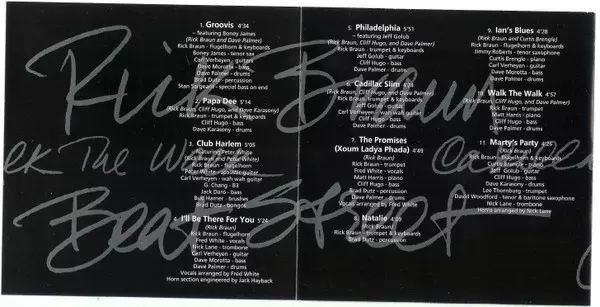 1. Groovis 4'34
– featuring Boney James
(Rick Braun and Dave Palmer)
Rick Braun - flugelhorn & keyboards
Boney James - tenor sax
Carl Verheyen - guitar
Dave Morotta - bass
Dave Palmer - drums
Brad Dutz - percussion
Stan Sargeant - special bass on end
2. Papa Dee 5'14
(Rick Braun, Cliff Hugo, and Dave Karasony)
Rick Braun - trumpet & keyboards
Cliff Hugo - bass
Dave Karasony - drums
3. Club Harlem 5'05
– featuring Peter White
(Rick Braun and Peter White)
Rick Braun - flugelhorn
Peter White - acoustic guitar
Carl Verheyen - wah wah guitar
G. Chang - B3
Jack Daro - bass
Bud Harner - brushes
Brad Dutz - bongos
4. I'll Be There For You 5'24
(Rick Braun)
Rick Braun - flugelhorn
Fred White - vocals
Nick Lane - trombone
Carl Verheyen - guitar
Dave Morotta - bass
Dave Palmer - drums
Vocals arranged by Fred White
Horn section engineered by Jack Hayback
5. Philadelphia 5'51
– featuring Jeff Golub
(Rick Braun, Cliff Hugo, and Dave Palmer)
Rick Braun - trumpet & keyboards
Jeff Golub - guitar
Cliff Hugo - bass
Dave Palmer - drums
Cadillac Slim
(Rick Braun, Cliff Hugo, and Dave Palmer)
Rick Braun - trumpet & keyboards
Jeff Golub - guitar
Carl Verheyen - wah wah guitar
Cliff Hugo - bass
Dave Palmer - drums
7. The Promises
(Xoum Ladya Phada) 4'49
(Rick Braun)
Rick Braun - trumpet
Fred White - vocals
Matt Harris - piano
Cliff Hugo - bass
Brad Dutz - percussion
Dave Palmer - drums
Vocals arranged by Fred White
Natalie
(Rick Braun)
Rick Braun - trumpet & keyboards
Brad Dutz - percussion
9. Ian's Blues 4'28
(Rick Braun and Curtis Brengle)
Rick Braun - flugelhorn & keyboards
Jimmy Roberts - tenor saxophone
Curtis Brengle - piano
Carl Verheyen - guitar
Dave Morotta - bass
Dave Palmer - drums
10. Walk The Walk 4'57
(Rick Braun, Cliff Hugo, and Dave Palmer)
Rick Braun - trumpet
Matt Harris - piano
Cliff Hugo - bass
Dave Palmer - drums
11. Marty's Party
(Rick Braun)
Rick Braun - flugelhorn & keyboards
Jeff Golub - guitar
Cliff Hugo - bass
Dave Karasony - drums
Lee Thornburg - trumpet
David Woodford - tenor & baritone saxophone
Nick Lane - trombone
Horns arranged by Nick Lane
Rick Braun
Beat Street